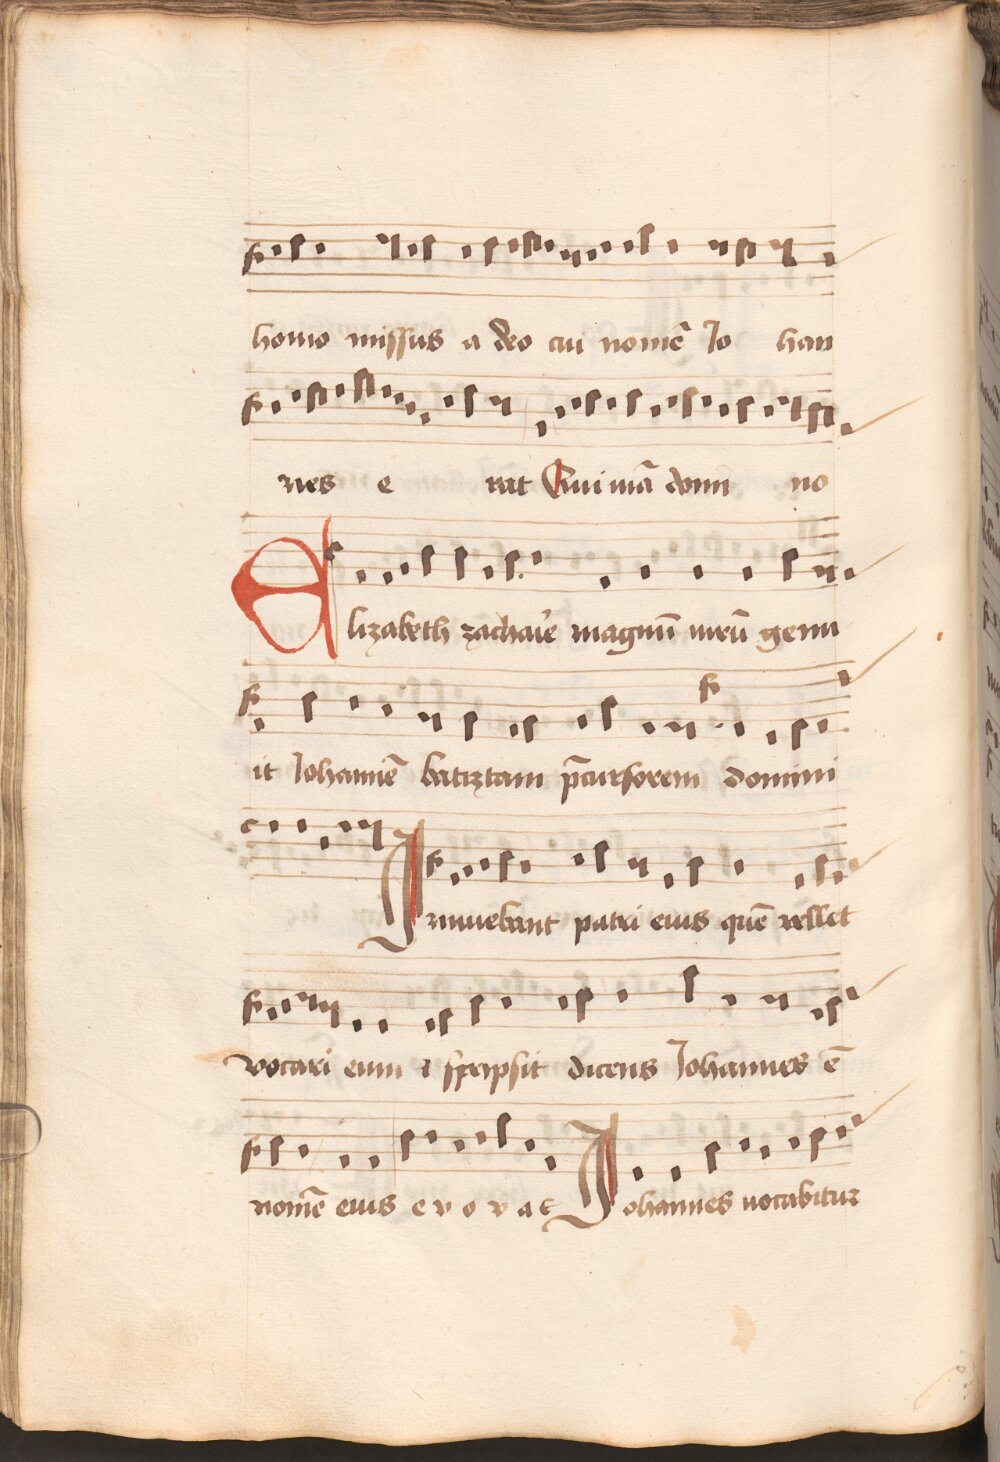 homo missus a deo cui nomē Jo han
nes e rat Qui mā domi no
Elizabeth zachaı̉e magnū uirū genu
it Johannē batiztam p̄cursorem domini
Innuebant patri eius quē vellet
vocari eum ⁊ scripsit dicens Johannes ē
nomē eius e v o v a e Johannes uocabitur